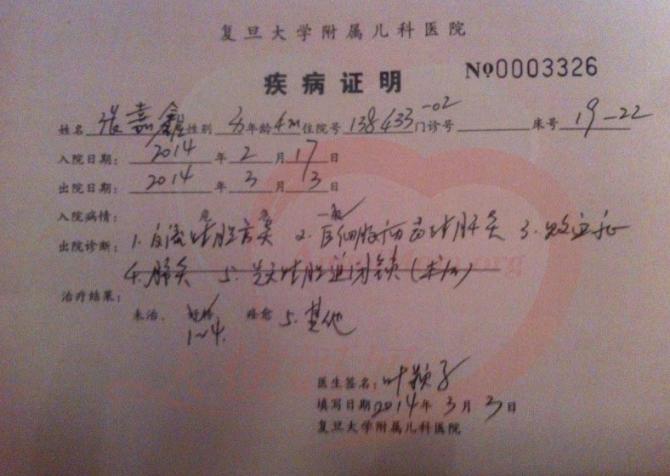 复旦大学附属儿科医院
疾病证明 №0003326
姓名 张嘉鑫 性别 女 年龄 4m 住院号 138433-02 门诊号 床号 19-22
入院日期: 2014 年 2 月 17 日
出院日期: 2014 年 3 月 3 日
入院病情: 危 急 一般
出院诊断: 1. 反流性胆管炎 2. 巨细胞病毒性肝炎 3.
4. 肺炎 5. 胆道闭锁(术后)
治疗结果:
未治、 好转 痊愈 5. 其他
1~4.
医生签名: 叶颖子
填写日期 2014 年 3 月 3 日
复旦大学附属儿科医院